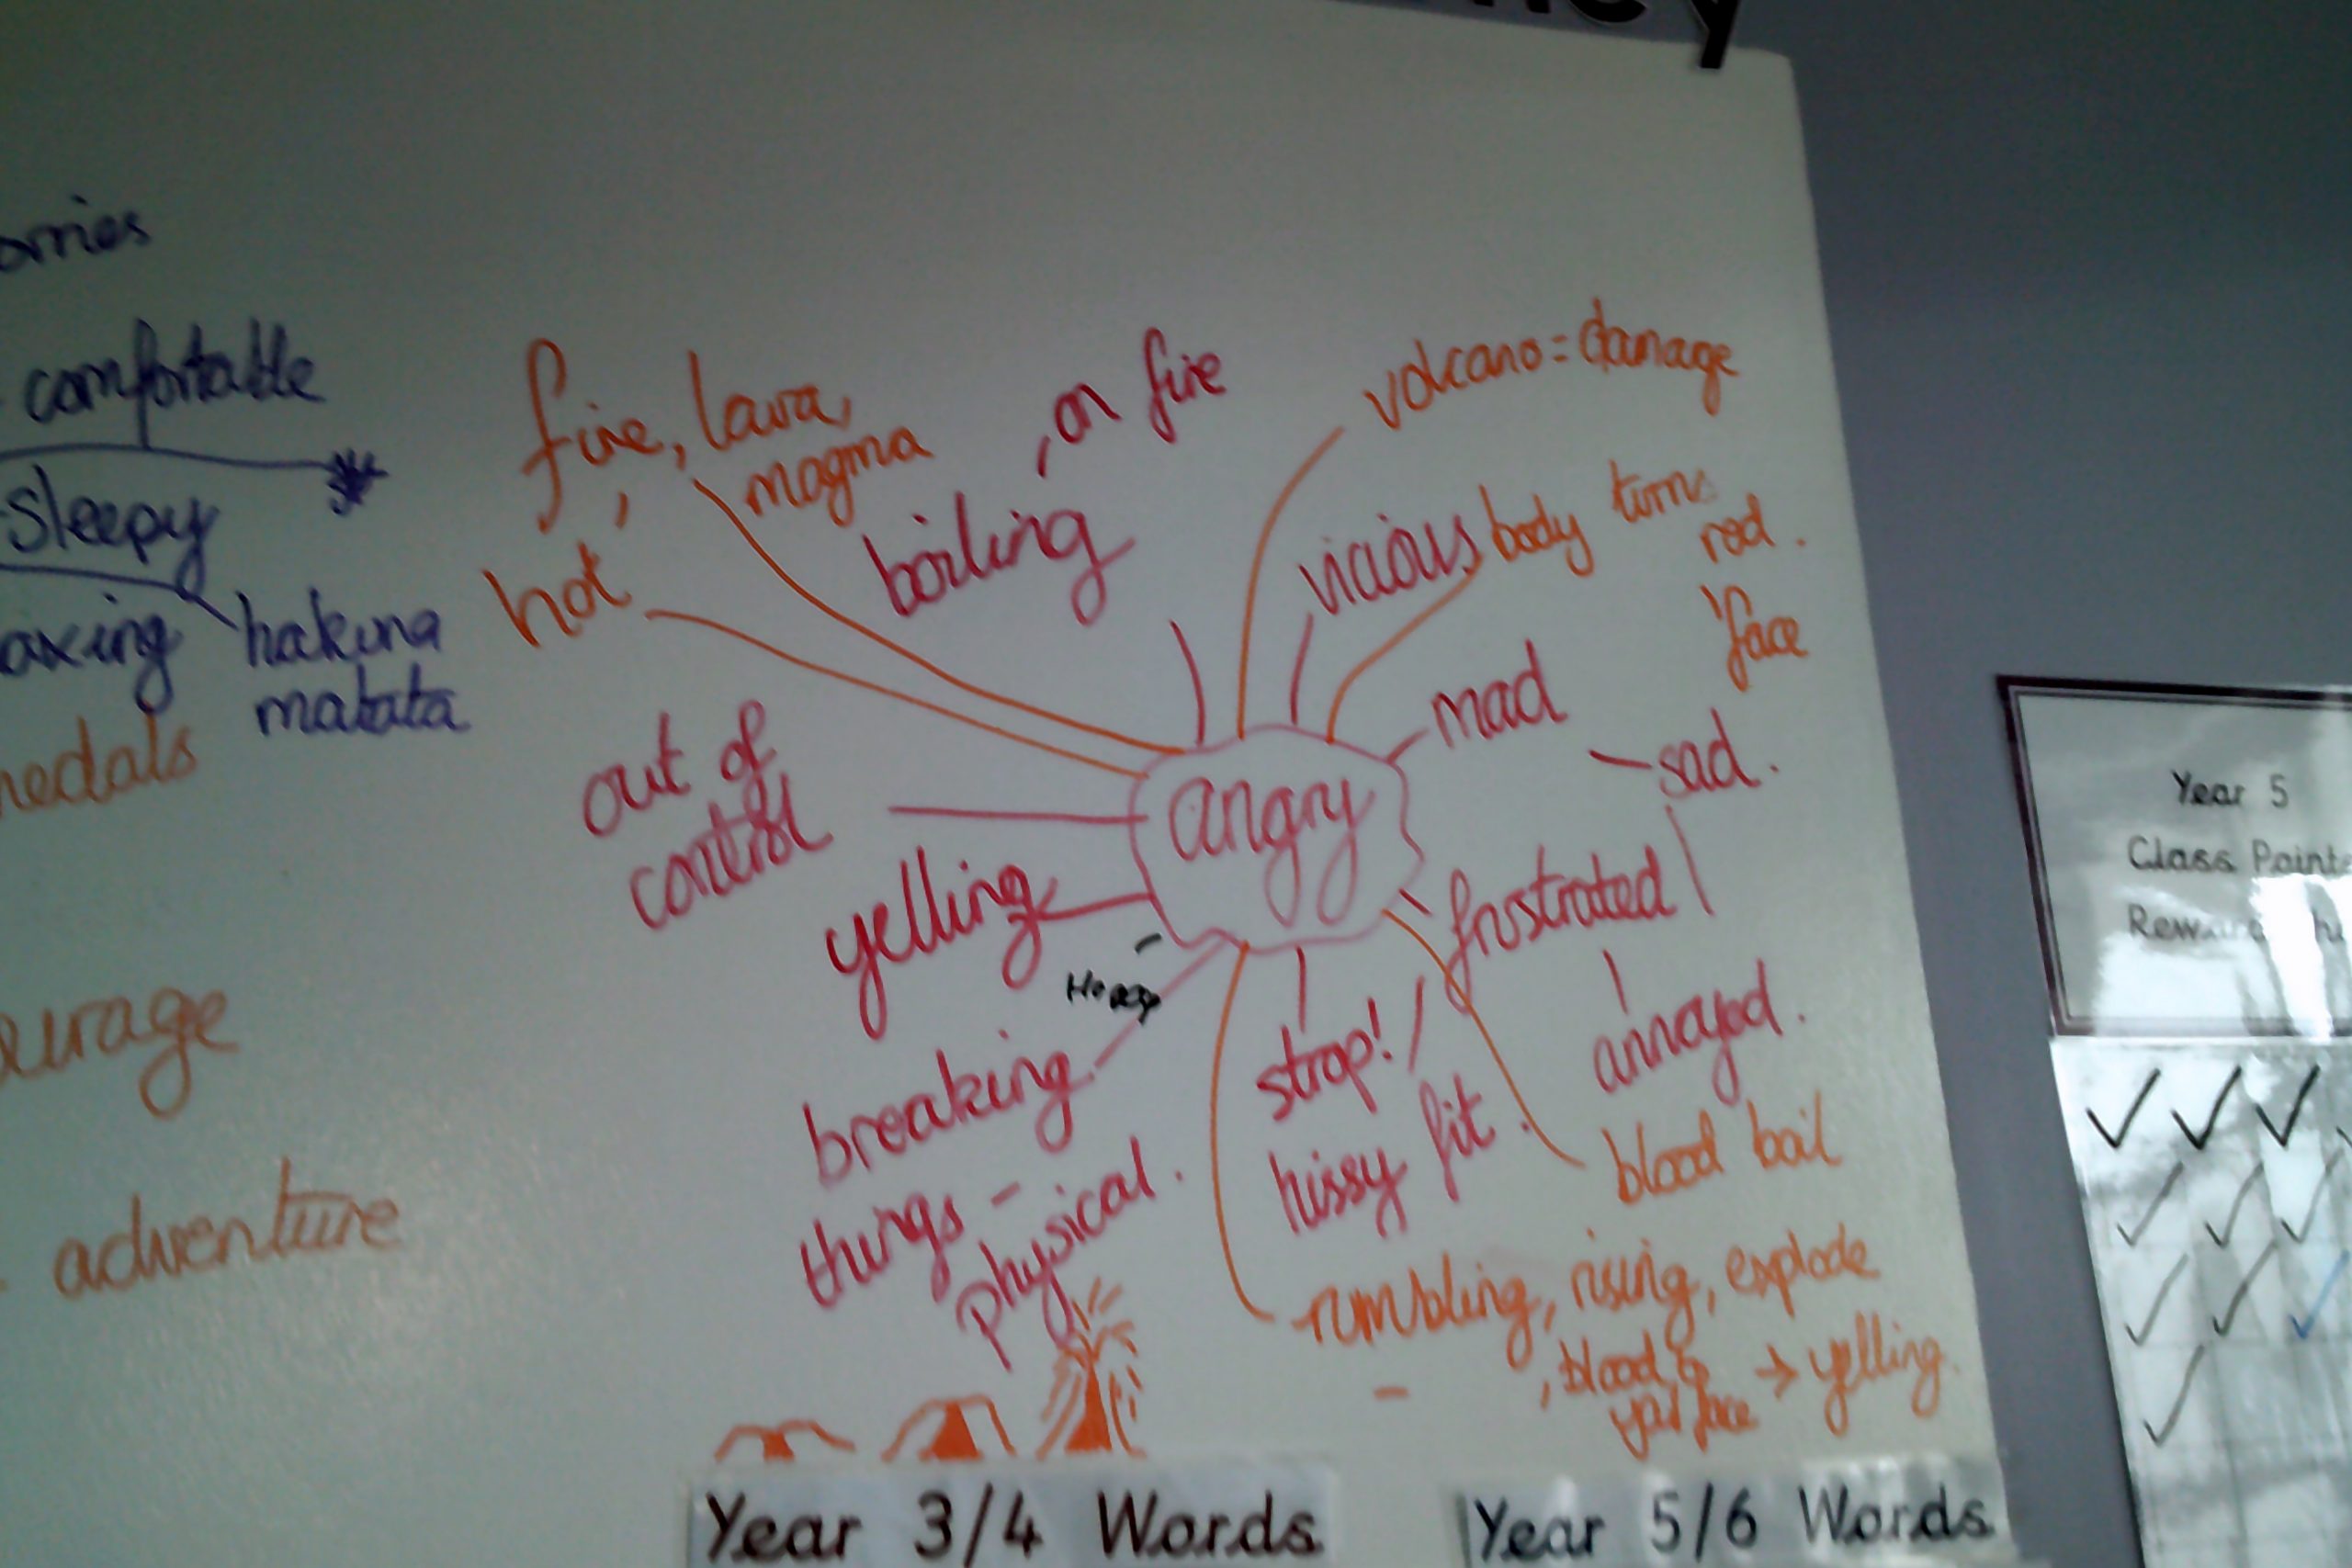 orries
comfortable
sleepy
axing hakuna
matata
medals
urage
adventure
fire, lava,
magma
hot
boiling
, on fire
volcano = damage
vicious
body turns
red.
face
mad
- sad.
out of
control
angry
yelling
frustrated
annoyed.
breaking
things -
physical.
strop! /
hissy fit.
blood boil
rumbling, rising, explode
, blood
your face → yelling.
Year 3/4 Words
Year 5/6 Words
Year 5
Class Points